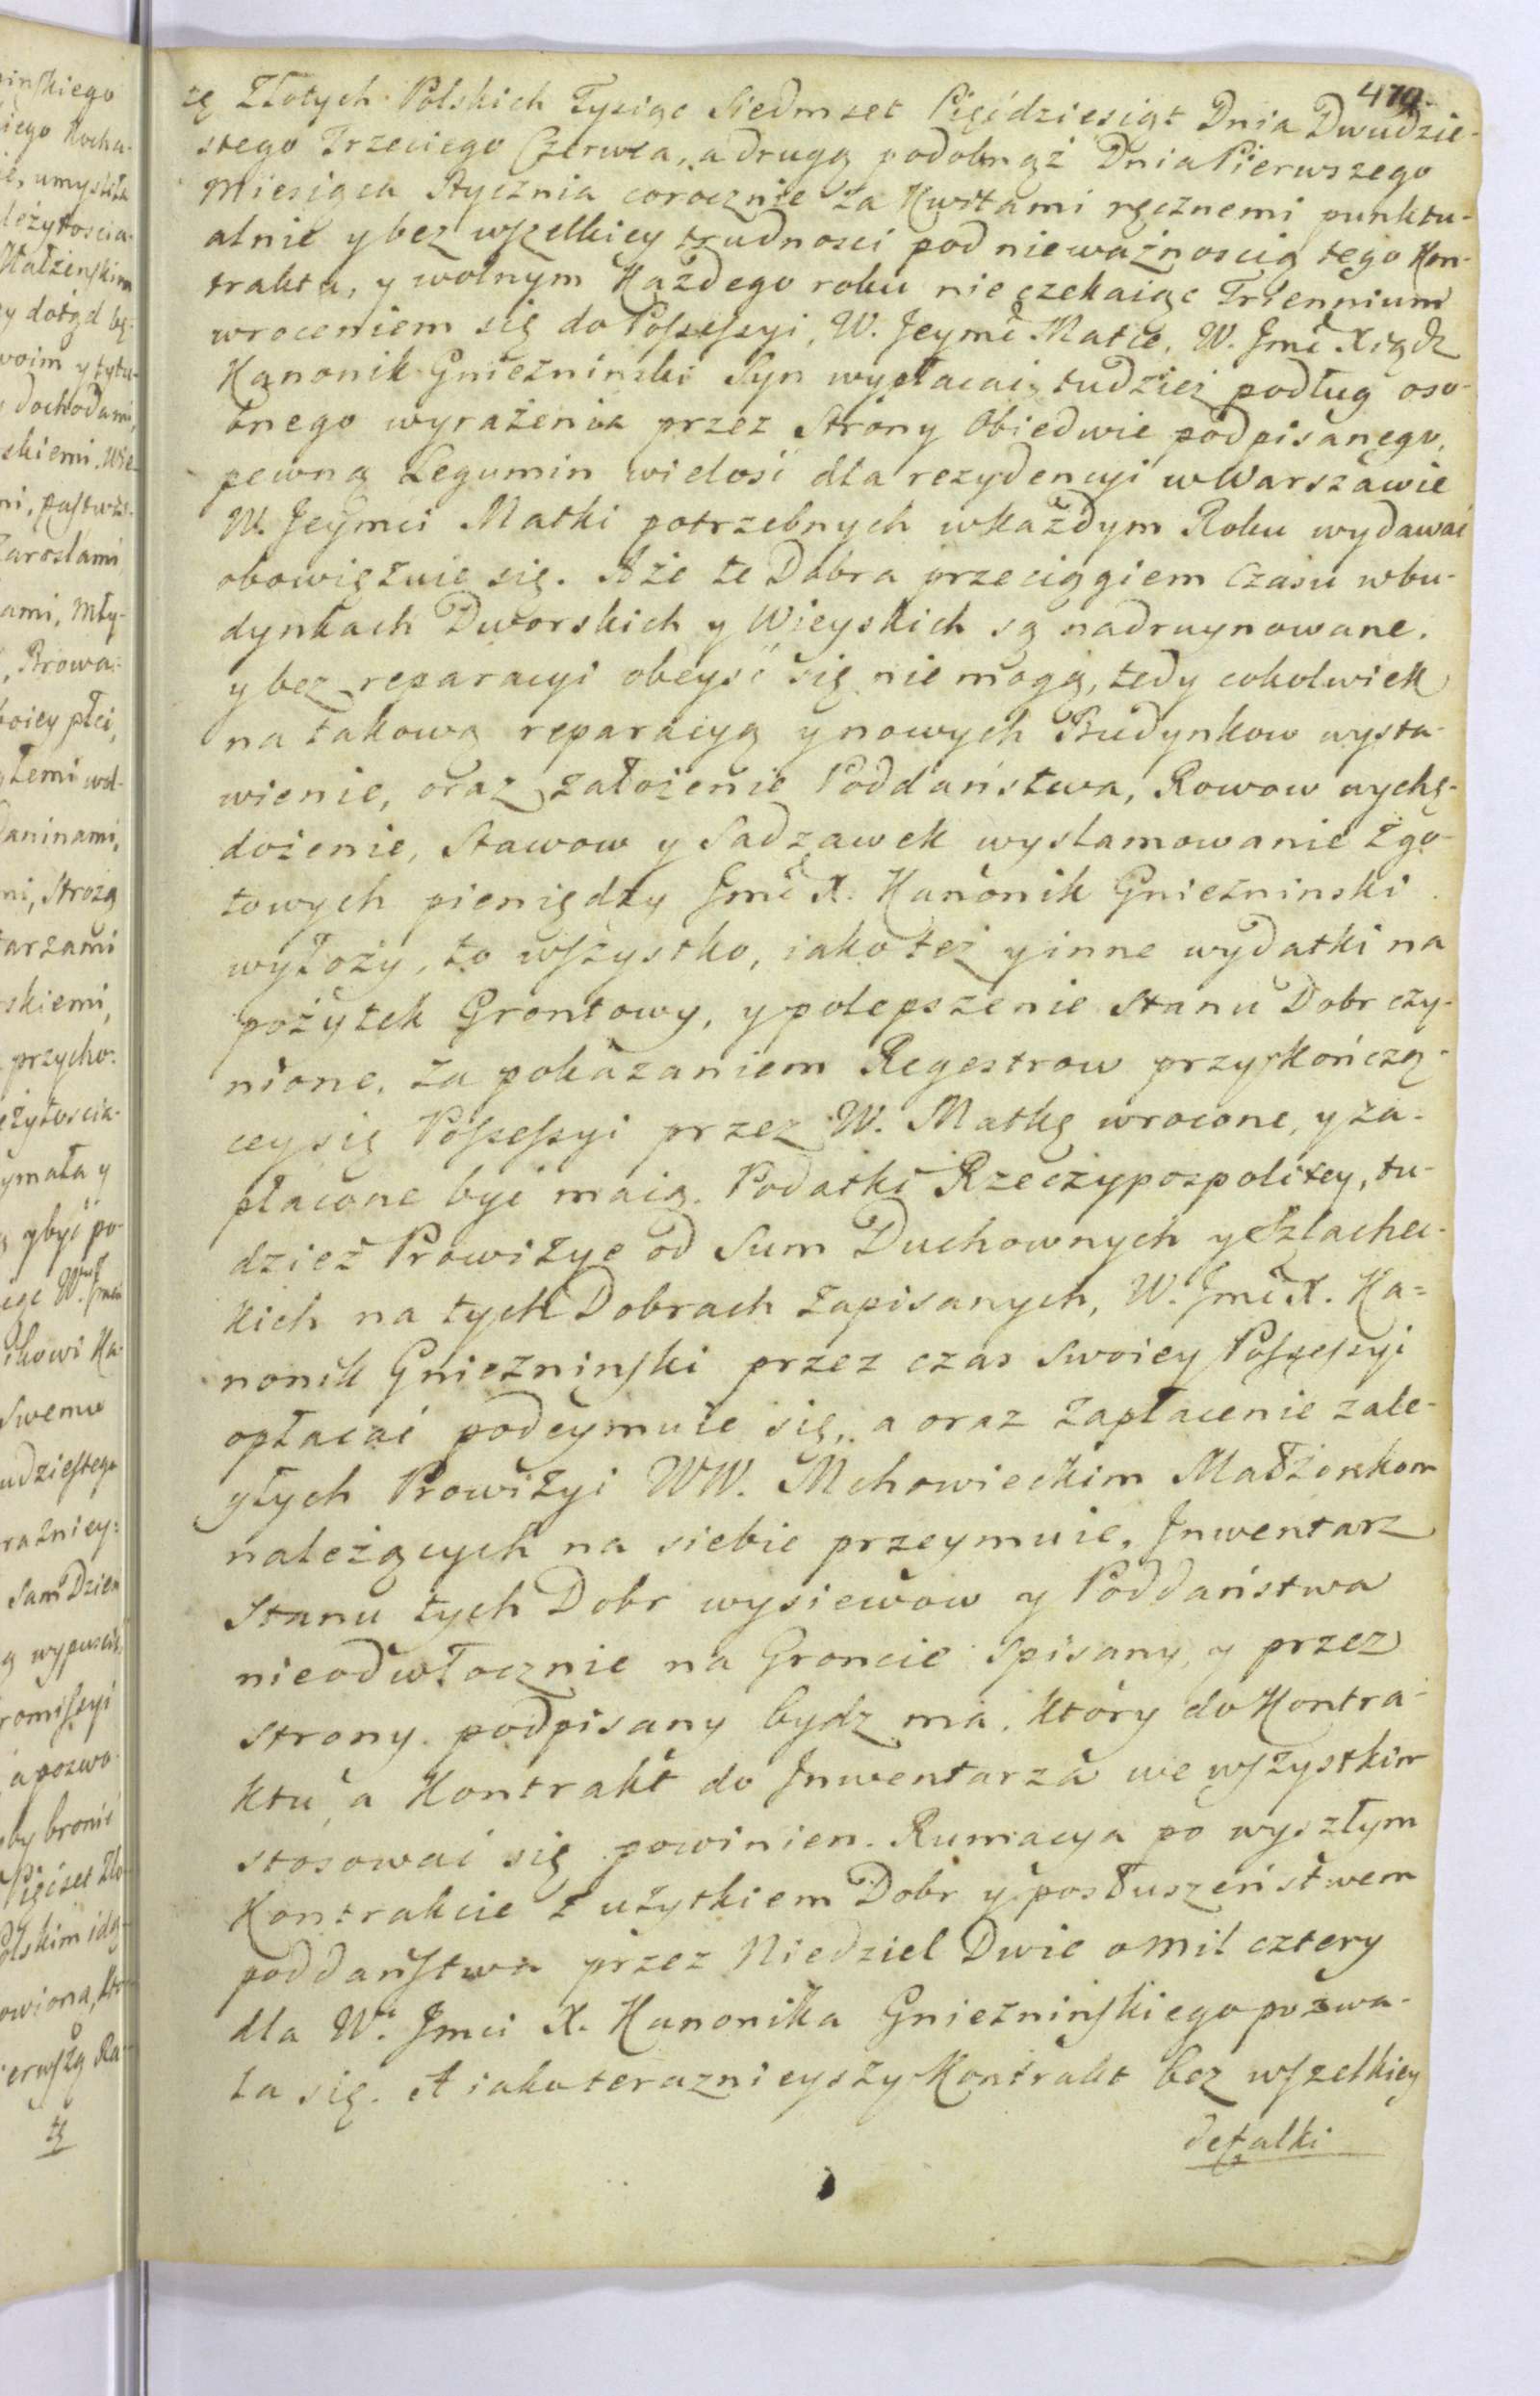 479.
tę Złotych Polskich Tysiąc Siedmset Pięćdziesiąt Dnia Dwudzie-
stego Trzeciego Czerwca, a drugą podobnąż Dnia Pierwszego
Miesiąca Stycznia corocznie za Kwitami ręcznemi punktu-
alnie y bez wszelkiey trudnosci pod nieważnoscią tego Kon-
traktu, y wolnym Każdego roku nie czekaiąc Triennium
wroceniem się do Possessyi, W. Jeymć Matce, W. Jmć Xiądz
Kanonik Gnieźninski Syn wypłacać, tudzież podług oso-
bnego wyrażenia przez Strony Obiedwie podpisanego,
pewną Legumin wielość dla rezydencyi w Warszawie
W. Jeymci Matki potrzebnych w każdym Roku wydawać
obowięzuie się. A że te Dobra przeciągiem Czasu w bu-
dynkach Dworskich y Wieyskich są nadruynowane,
y bez reparacyi obeyść się nie mogą, tedy cokolwiek
na takową reparacyą y nowych Budynkow wysta-
wienie, oraz założenie Poddaństwa, Rowow wychę-
dożenie, Stawow y Sadzawek wyslamowanie z go-
towych pieniędzy Jmć X. Kanonik Gnieźninski
wyłoży, to wszystko, iako też y inne wydatki na
pożytek Grontowy, y polepszenie Stanu Dobr czy-
nione, za pokazaniem Regestrow przy skończą-
cey się Possessyi przez W. Matkę wrocone, y za-
płacone być maią. Podatki Rzeczypospolitey, tu-
dzież Prowizye od Sum Duchownych y Szlachec-
kich na tych Dobrach zapisanych, W. Jmć X. Ka=
nonik Gnieźninski przez czas swoiey Possessyi
opłacać podeymuie się, a oraz zapłacenie zale-
głych Prowizyi WW. Mchowieckim Małżonkom
należących na siebie przeymuie. Jnwentarz
Stanu tych Dobr wysiewow y Poddaństwa
nieodwłocznie na Groncie spisany, y przez
strony podpisany bydz ma, który do Kontra-
ktu a Kontrakt do Jnwentarza we wszystkim
stosować się powinien. Rumacya po wyszłym
Kontrakcie z użytkiem Dobr y posłuszeństwem
poddaństwa przez Niedziel Dwie o mil cztery
dla W. Jmci X. Kanonika Gnieźninskiego pozwa-
la się. A iako teraznieyszy Kontrakt bez wszelkiey
defalki